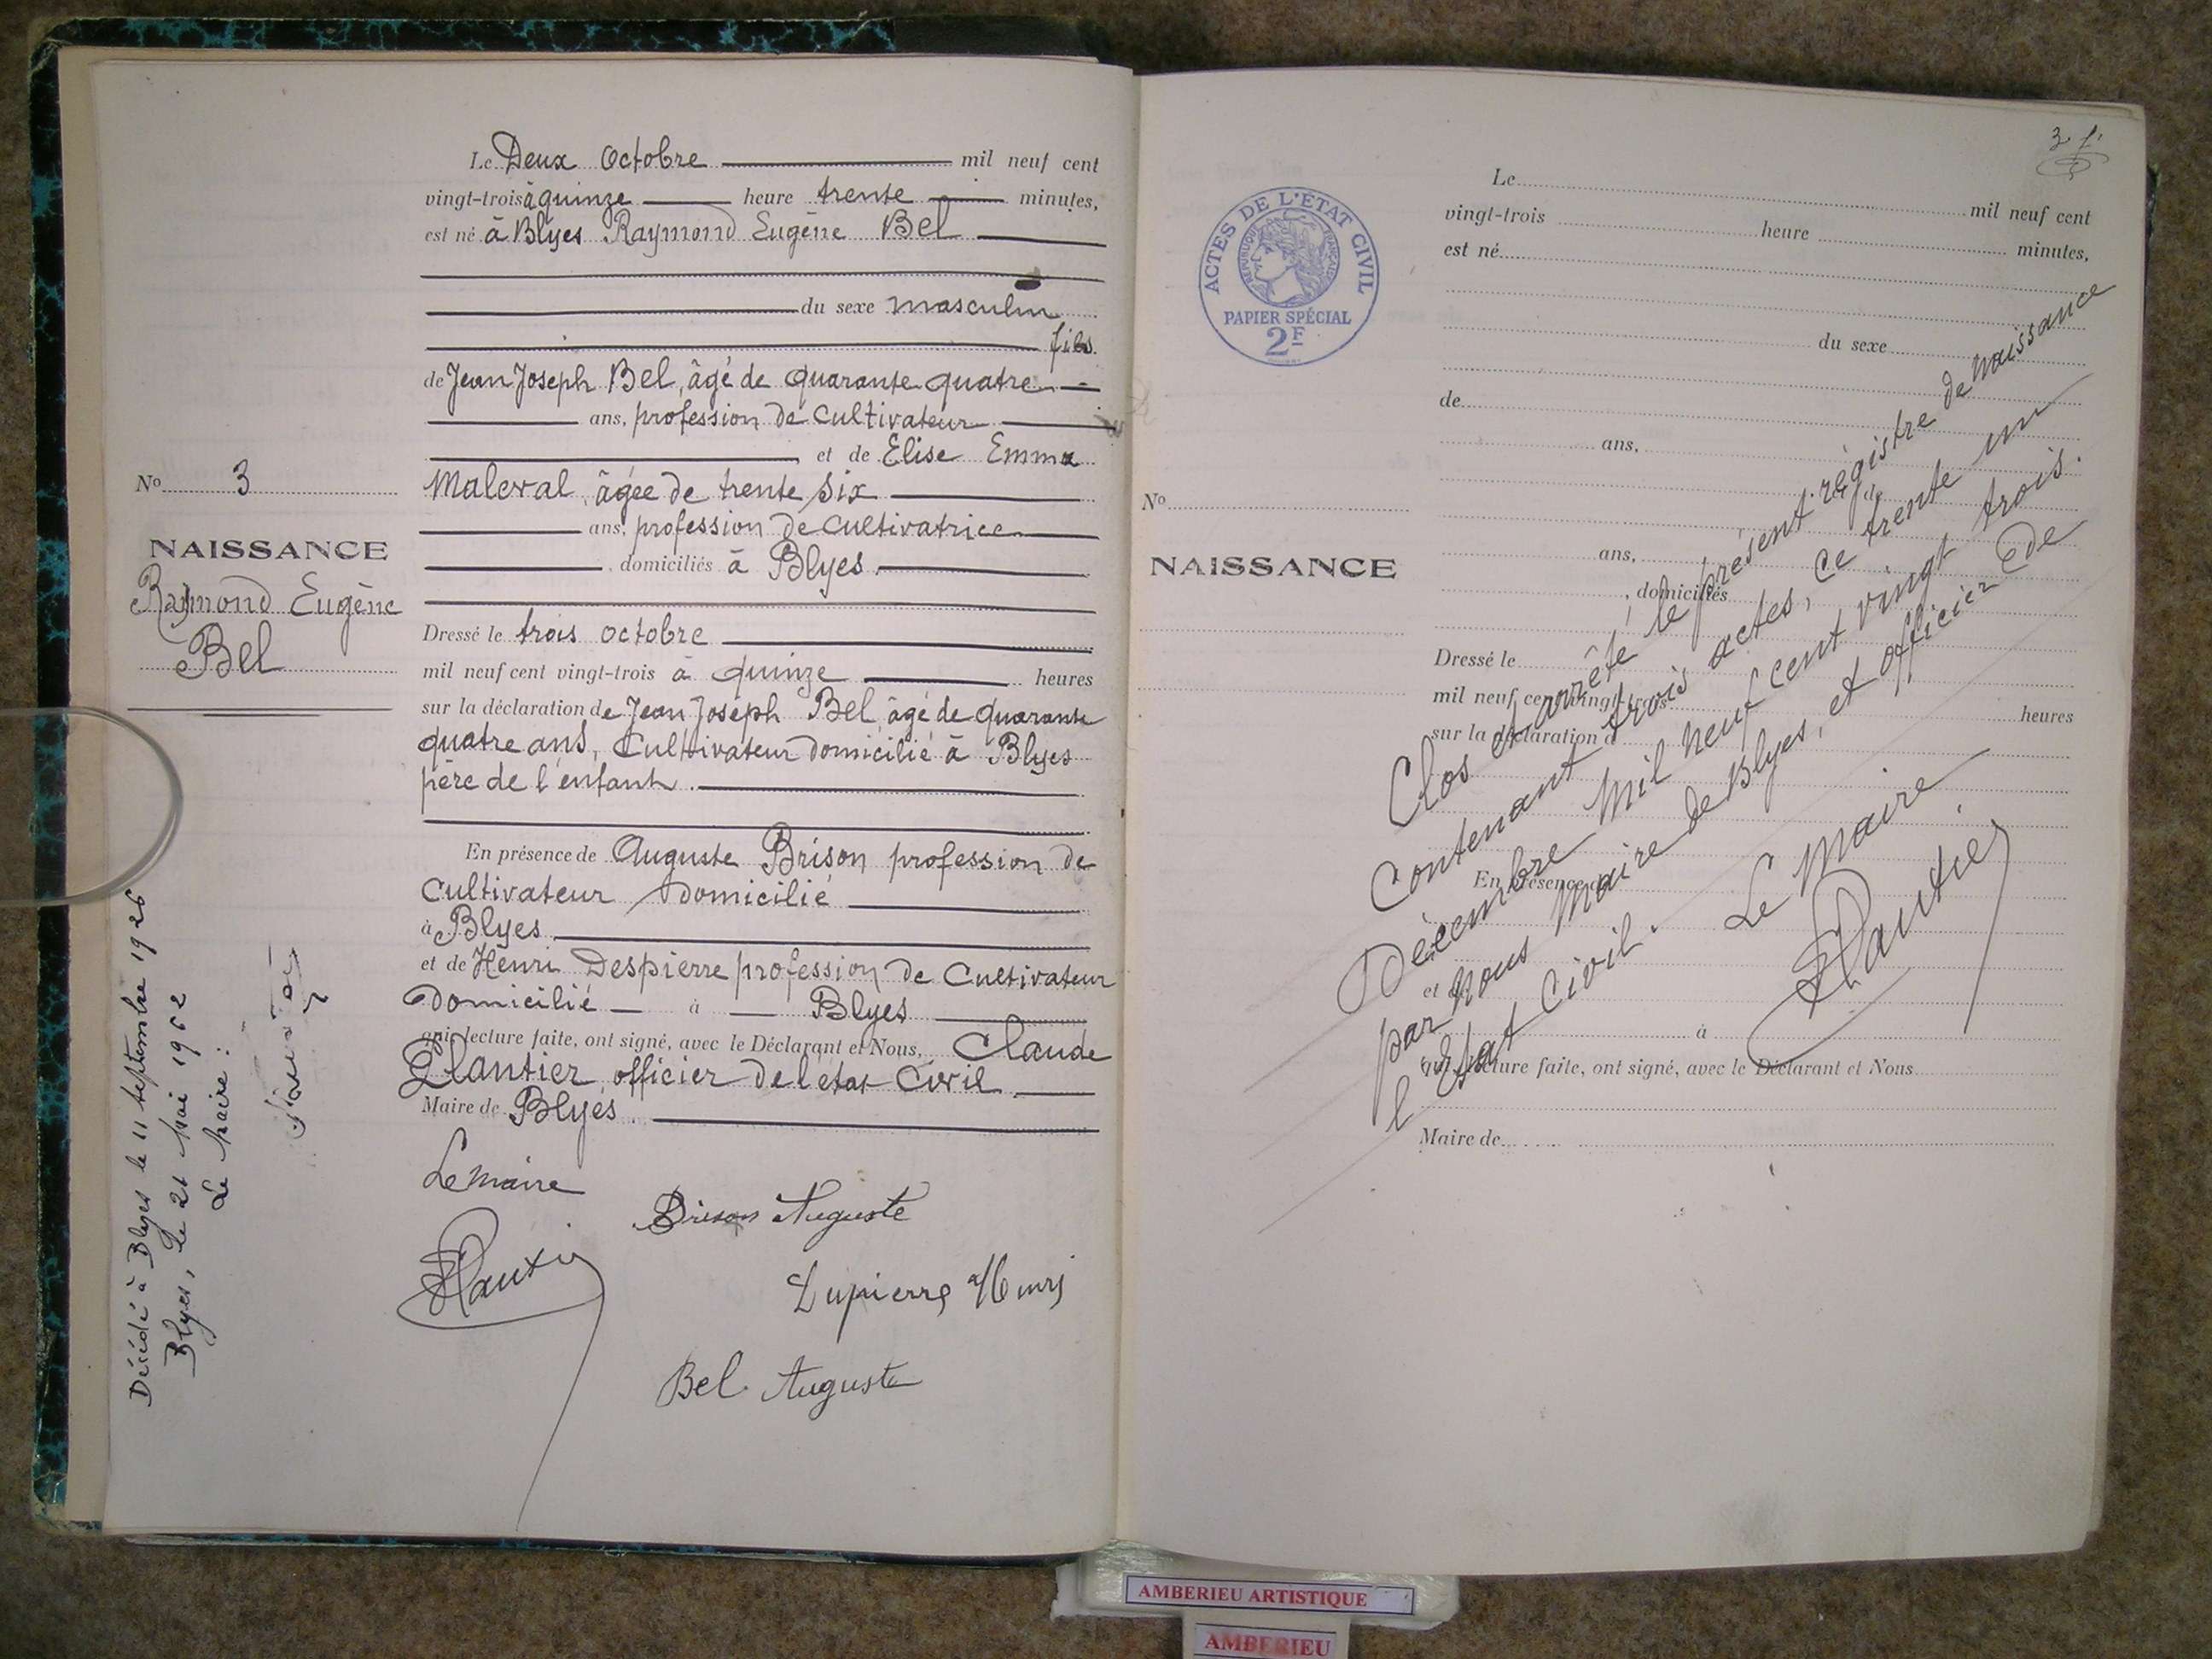 Le Deux Octobre mil neuf cent
vingt-trois à quinze heure trente minutes,
est né à Blyes Raymond Eugène Bel
du sexe masculin
fils
de Jean Joseph Bel, âgé de quarante quatre
ans, profession de cultivateur
et de Elise Emma
Maleval, âgée de trente six
ans, profession de cultivatrice
domiciliés à Blyes
Dressé le trois octobre
mil neuf cent vingt-trois à quinze heures
sur la déclaration de Jean Joseph Bel, âgé de quarante
quatre ans, Cultivateur domicilié à Blyes
père de l'enfant.
En présence de Auguste Brison profession de
Cultivateur domicilié
à Blyes
et de Henri Despierre profession de Cultivateur
domicilié à Blyes
qui, lecture faite, ont signé, avec le Déclarant et Nous, Claude
Plantier officier de l'etat Civil
Maire de Blyes
Le maire
Brison Auguste
Plantier
Henri
Bel Auguste
No 3
NAISSANCE
Raymond Eugène
Bel
Décédé à Blyes le 11 septembre 1926
Blyes, le 21 Mai 1952
Le Maire :
3
ACTES DE L'ÉTAT CIVIL
RÉPUBLIQUE FRANÇAISE
PAPIER SPÉCIAL
2F
No
NAISSANCE
Le mil neuf cent
vingt-trois heure minutes,
est né
du sexe
de
ans,
et de
ans,
, domiciliés
Dressé le
mil neuf cent vingt-trois heures
sur la déclaration d
En présence
et d
à
qui, lecture faite, ont signé, avec le Déclarant et Nous
Maire de
Clos et arrêté le présent régistre de naissance
Contenant trois actes, ce trente un
Décembre mil neuf cent vingt trois.
par nous Maire de Blyes, et officier de
l'Etat Civil.
Le Maire
Plantier
AMBERIEU ARTISTIQUE
AMBERIEU